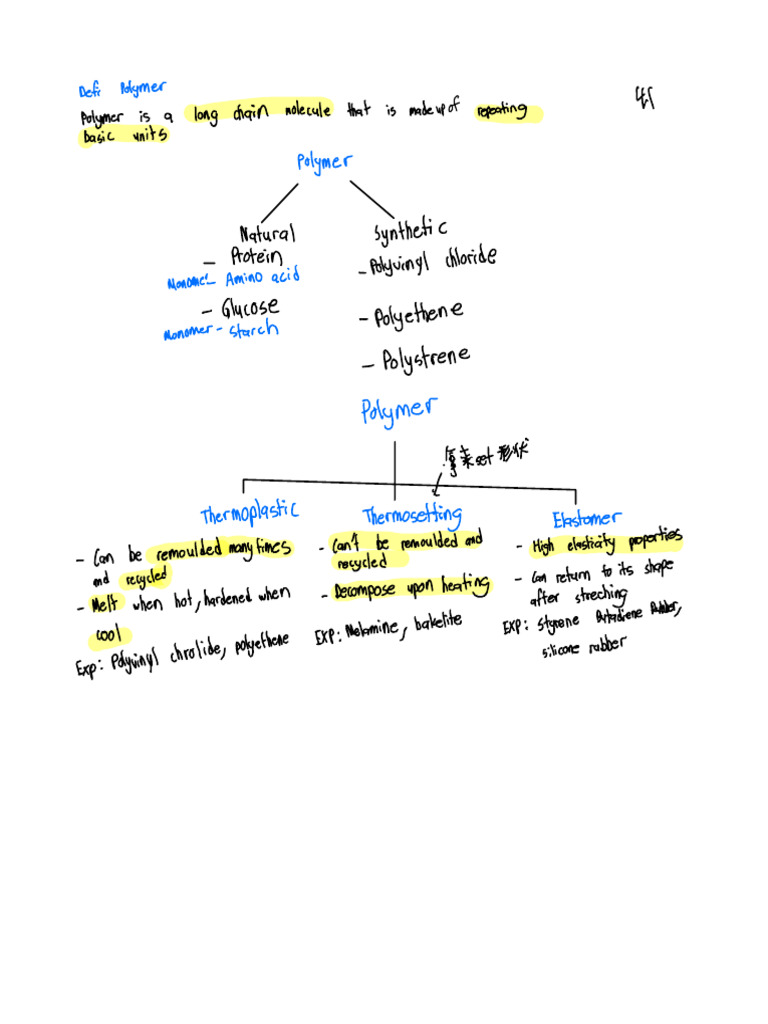 Defn Polymer
Polymer is a long chain molecule that is made up of repeating
basic units
Polymer
Natural
- Protein
Monomer - Amino acid
- Glucose
Monomer - starch
Synthetic
- Polyvinyl chloride
- Polyethene
- Polystrene
Polymer
set 形状
Thermoplastic
- Can be remoulded many times
and recycled
- Melt when hot, hardened when
cool
Exp: Polyvinyl chrolide, polyethene
Thermosetting
- Can't be remoulded and
resycled
- Decompose upon heating
Exp: Melamine, bakelite
Elastomer
- High elasticity properties
- Can return to its shape
after streching
Exp: Styrene Butadiene Rubber,
silicone rubber